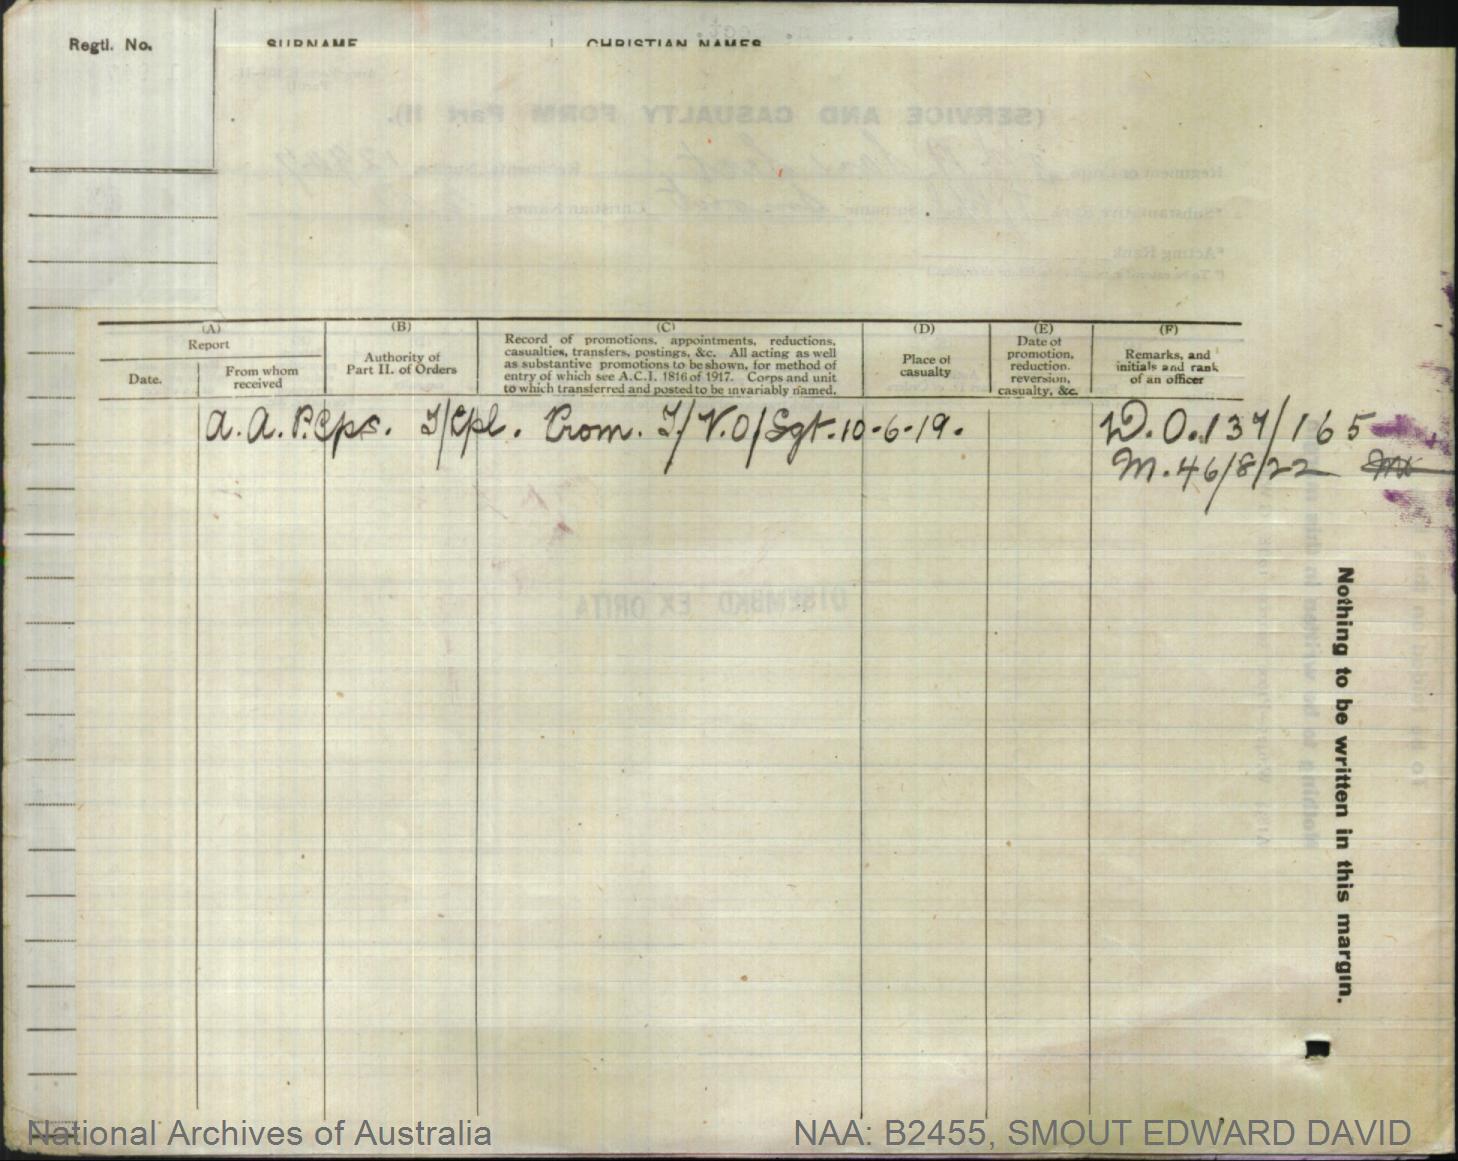 Regtl. No. SURNAME CHRISTIAN NAMES
(SERVICE AND CASUALTY FORM Part II).
Regiment or Corps Regimental Number
*Substantive Rank Surname Smout Christian Names
*Acting Rank
(A) (B) (C) (D) (E) (F)
Report
Date.
From whom
received
Authority of
Part II. of Orders
Record of promotions, appointments, reductions,
casualties, transfers, postings, &c. All acting as well
as substantive promotions to be shown, for method of
entry of which see A.C.I. 1816 of 1917. Corps and unit
to which transferred and posted to be invariably named.
Place of
casualty
Date of
promotion,
reduction,
reversion,
casualty, &c.
Remarks, and
initials and rank
of an officer
A. A. P. Cps. T/Cpl. Prom. T/ V.O/Sgt. 10-6-19. W.O. 137/165
M. 46/8/22
DISEMBKD EX ORITA
Nothing to be written in this margin.
National Archives of Australia NAA: B2455, SMOUT EDWARD DAVID